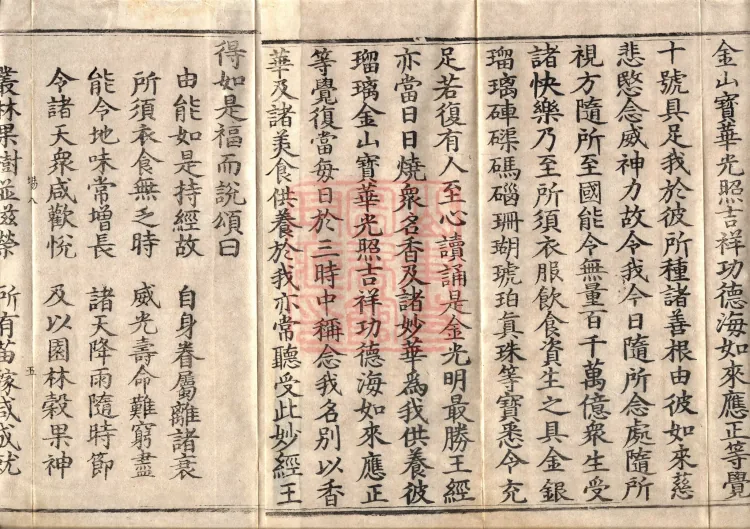 金山寶華光照吉祥功德海如來應正等覺
十號具足我於彼所種諸善根由彼如來慈
悲愍念威神力故令我今日隨所念處隨所
視方隨所至國能令無量百千萬億衆生受
諸快樂乃至所須衣服飲食資生之具金銀
瑠璃硨磲碼碯珊瑚琥珀真珠等寶悉令充
足若復有人至心讀誦是金光明最勝王經
亦當日日燒衆名香及諸妙華為我供養彼
瑠璃金山寶華光照吉祥功德海如來應正
等覺復當每日於三時中稱念我名別以香
華及諸美食供養於我亦常聽受此妙經王
得如是福而說頌曰
由能如是持經故 自身眷屬離諸衰
所須衣食無乏時 威光壽命難窮盡
能令地味常增長 諸天降雨隨時節
令諸天衆咸歡悅 及以園林穀果神
叢林果樹並滋榮 所有苗稼咸成就